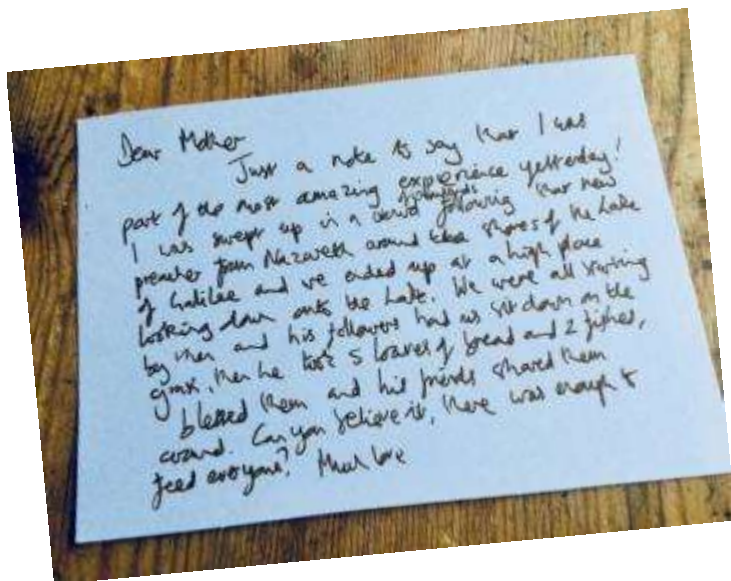 Dear Mother
Just a note to say that I was
part of the most amazing experience yesterday!
I was swept up in a crowd of thousands following that new
preacher from Nazareth around the shores of the Lake
of Galilee and we ended up at a high place
looking down onto the Lake. We were all starving
by then and his followers had us sit down on the
grass, then he took 5 loaves of bread and 2 fishes,
blessed them and his friends shared them
around. Can you believe it, there was enough to
feed everyone? Much love